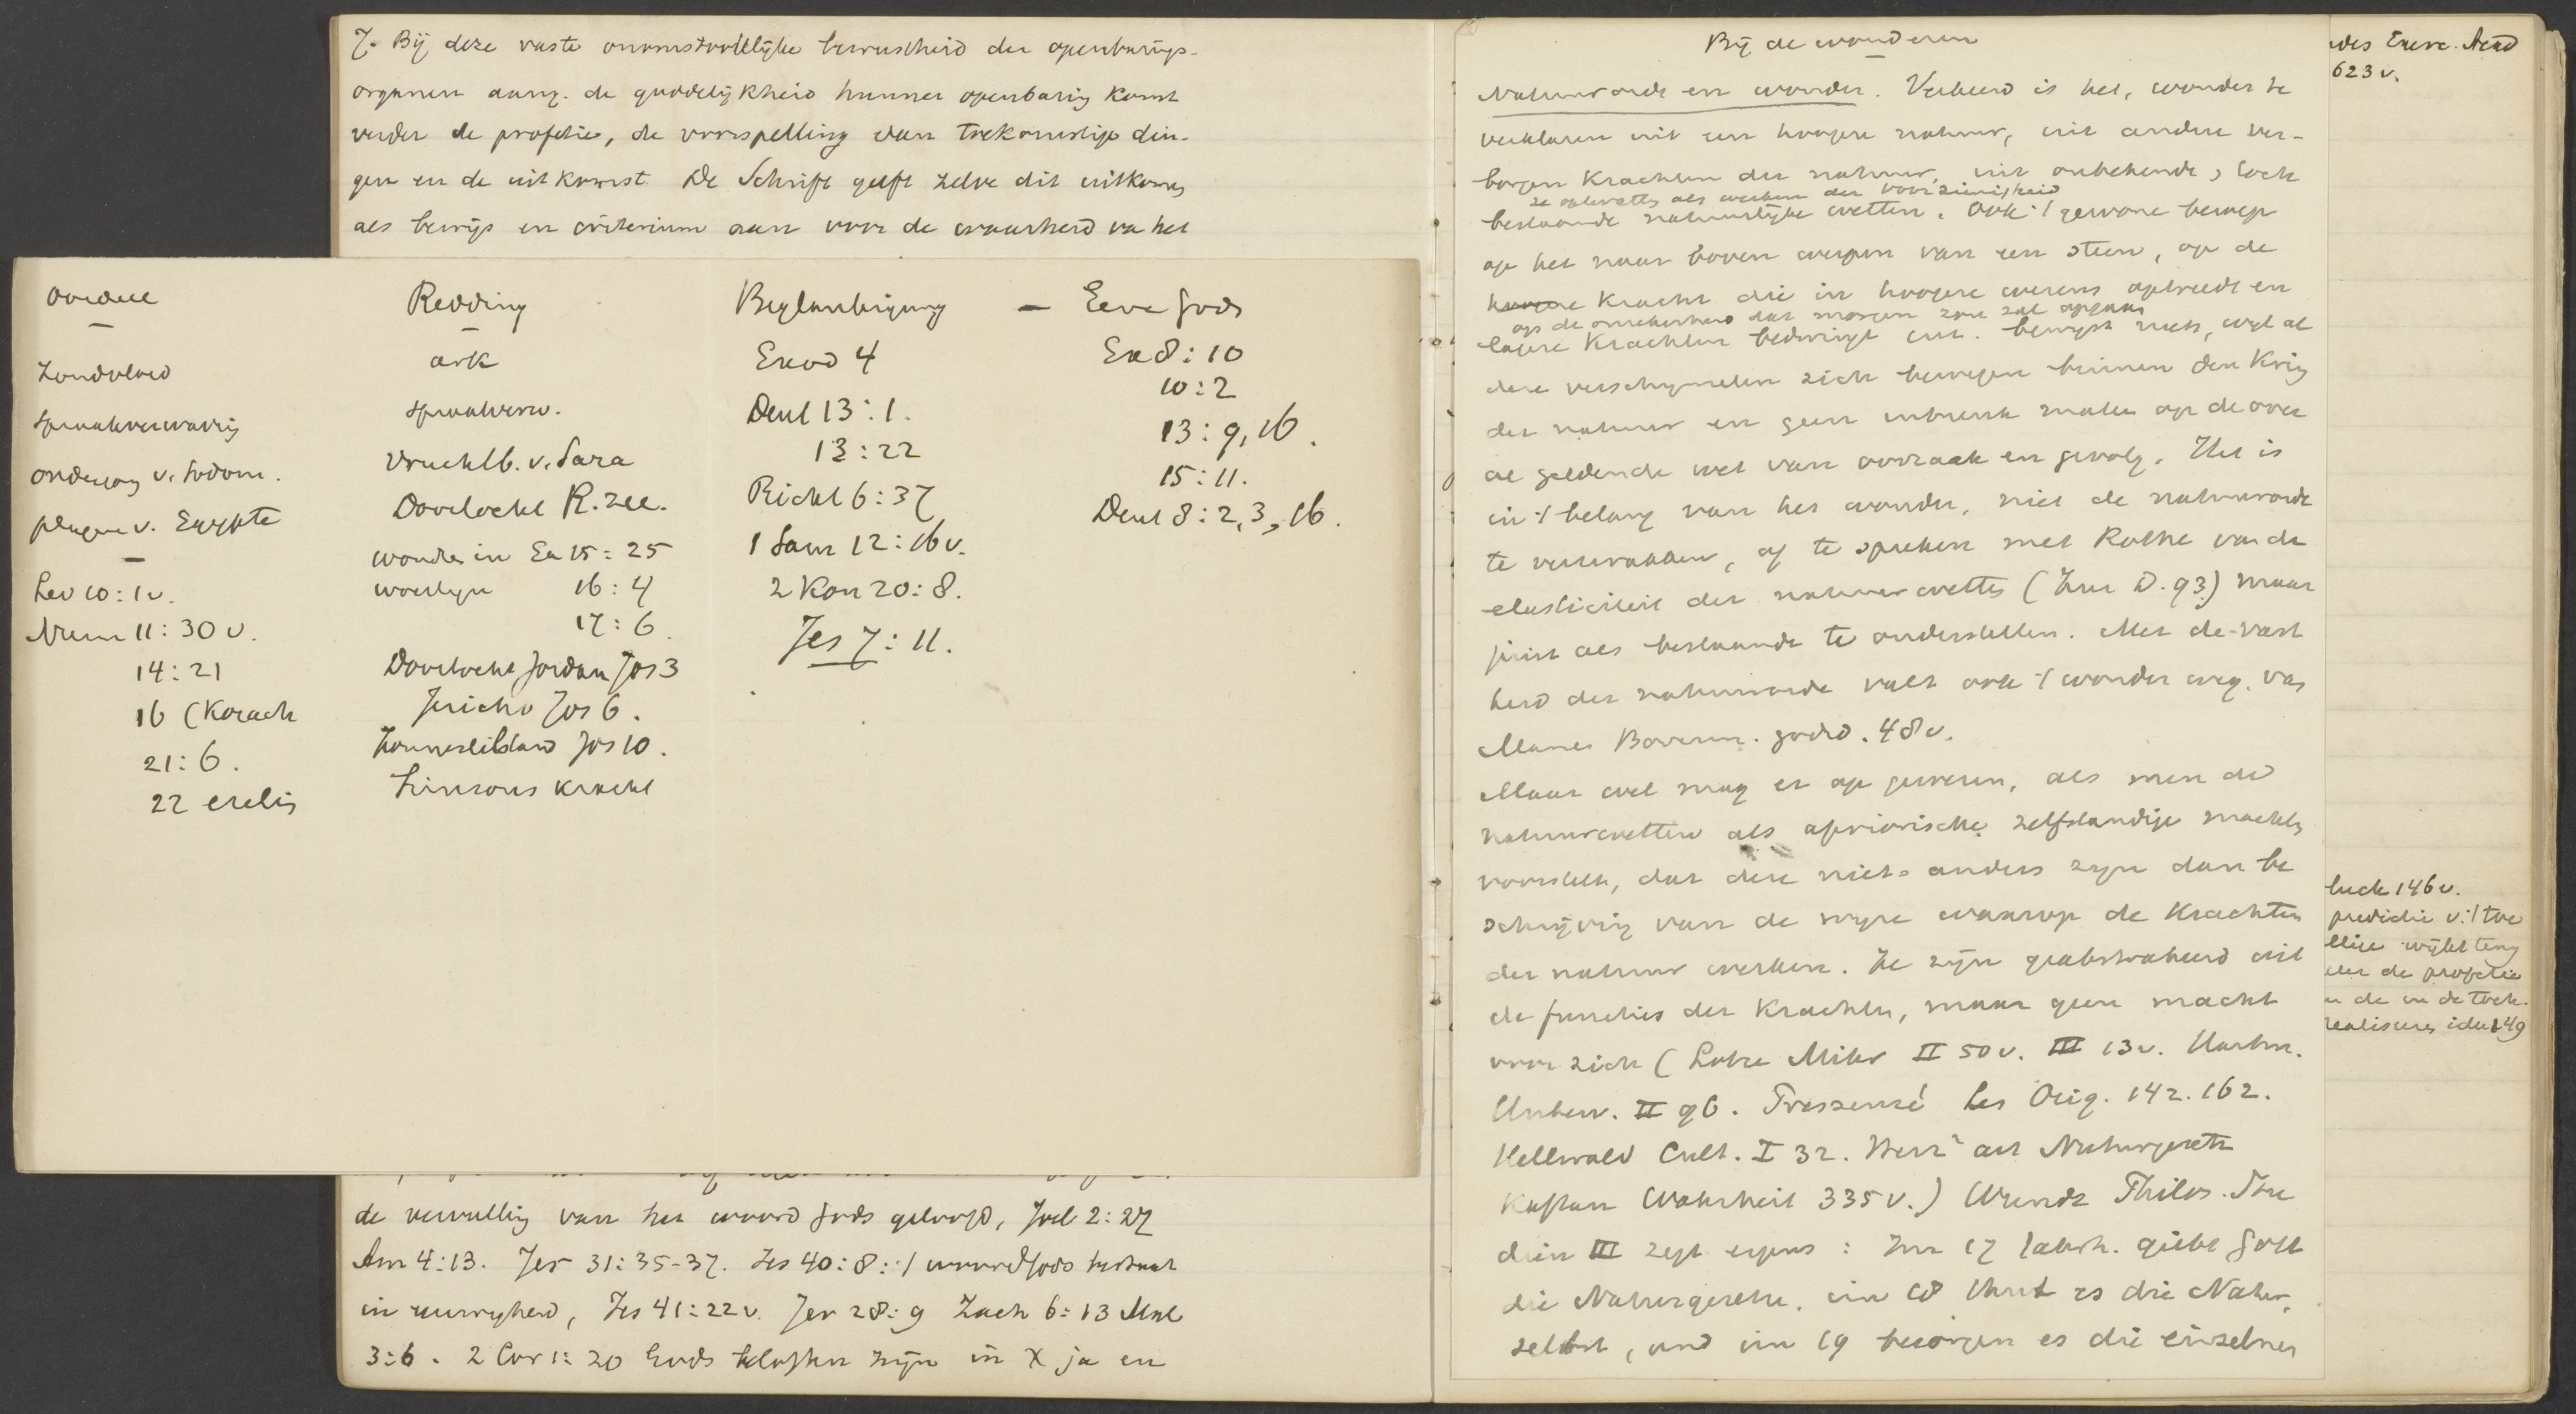 7. Bij deze vaste onomstootelijke bewustheid der openbarings-
organen aang. de goddelijkheid hunner openbaring komt
verder de profetie, de voorspelling van toekomstige din-
gen en de uitkomst. De Schrift geeft zelve dit uitkomen
als bewijs en criterium aan voor de waarheid va het
Oordeel
Zondvloed
Spraakverwarring
Ondergang v. Sodom.
plagen v. Egypte
Lev 10:1v.
Num 11:30v.
14:21
16 (Korach
21:6.
22 ezelin
Redding
ark
spraakverw.
Vruchtb. v. Sara
Doortocht R. zee.
wonder in Ex 15:25
woestijn 16:4
17:6.
Doortocht Jordan Jos 3
Jericho Jos 6.
Zonnestilstand Jos 10.
Simsons kracht
Beglaubigung
Exod 4
Deut 13:1.
13:22
Richt 6:37
1 Sam 12:16v.
2 Kon 20:8.
Jes 7:11.
– Eere Gods
Ex 8:10
10:2
13:9, 16.
15:11.
Deut 8:2, 3, 16.
de vervulling van het woord Gods geloofd, Joel 2:27
Am 4:13. Jer 31:35-37. Jes 40:8: 't woord Gods bestaat
in eeuwigheid, Jes 41:22v. Jer 28:9 Zach 6:13 Mal
3:6. 2 Cor 1:20 Gods beloften zijn in X ja en
Bij de wonderen
Natuurorde en wonder. Verkeerd is het, wonder te
verklaren uit een hoogere natuur, uit andere ver-
borgen krachten der natuur, uit onbekende, toch
ze opvatten als werken der voorzienigheid
bestaande natuurlijke wetten. Ook 't gewone beroep
op het naar boven werpen van een steen, op de
hoogere kracht die in hoogere wezens optreedt en
op de onzekerheid dat morgen zon zal opgaan
lagere krachten bedwingt enz. bewijst niets, wijl al
deze verschijnselen zich bewegen binnen den kring
der natuur en geen inbreuk maken op de over
al geldende wet van oorzaak en gevolg. Het is
in 't belang van het wonder, niet de natuurorde
te verzwakken, of te spreken met Rothe van de
elasticiteit der natuurwetten (Zur D. 93) maar
juist als bestaande te onderstellen. Met de vast
heid der natuurorde valt ook 't wonder weg. vas
Manes Bovenn. godsd. 48v.
Maar wel mag er op gewezen, als men de
natuurwetten als apriorische zelfstandige machten
voorstelt, dat deze niets anders zijn dan be
schrijving van de wijze waarop de krachten
der natuur werken. Ze zijn geabstraheerd uit
de functies der krachten, maar geen macht
voor zich (Lotze Mikr II 50v. III 13v. Hartm.
Unbew. II 96. Pressensé Les Orig. 142. 162.
Hellwald Cult. I 32. art Naturgesetz
Kaftan Wahrheit 335v.) Wundt Philos. Stu
dien III zegt ergens: Im 17 Jahrh. giebt Gott
die Naturgesetze, im 18 thut es die Natur
selbst, und im 19 besorgen es die einzelnen
Exerc. Acad
623v.
luck 146v.
predictie v. 't toe
wijkt terug
de profetie
de in de toek.
realiseeren idee 149